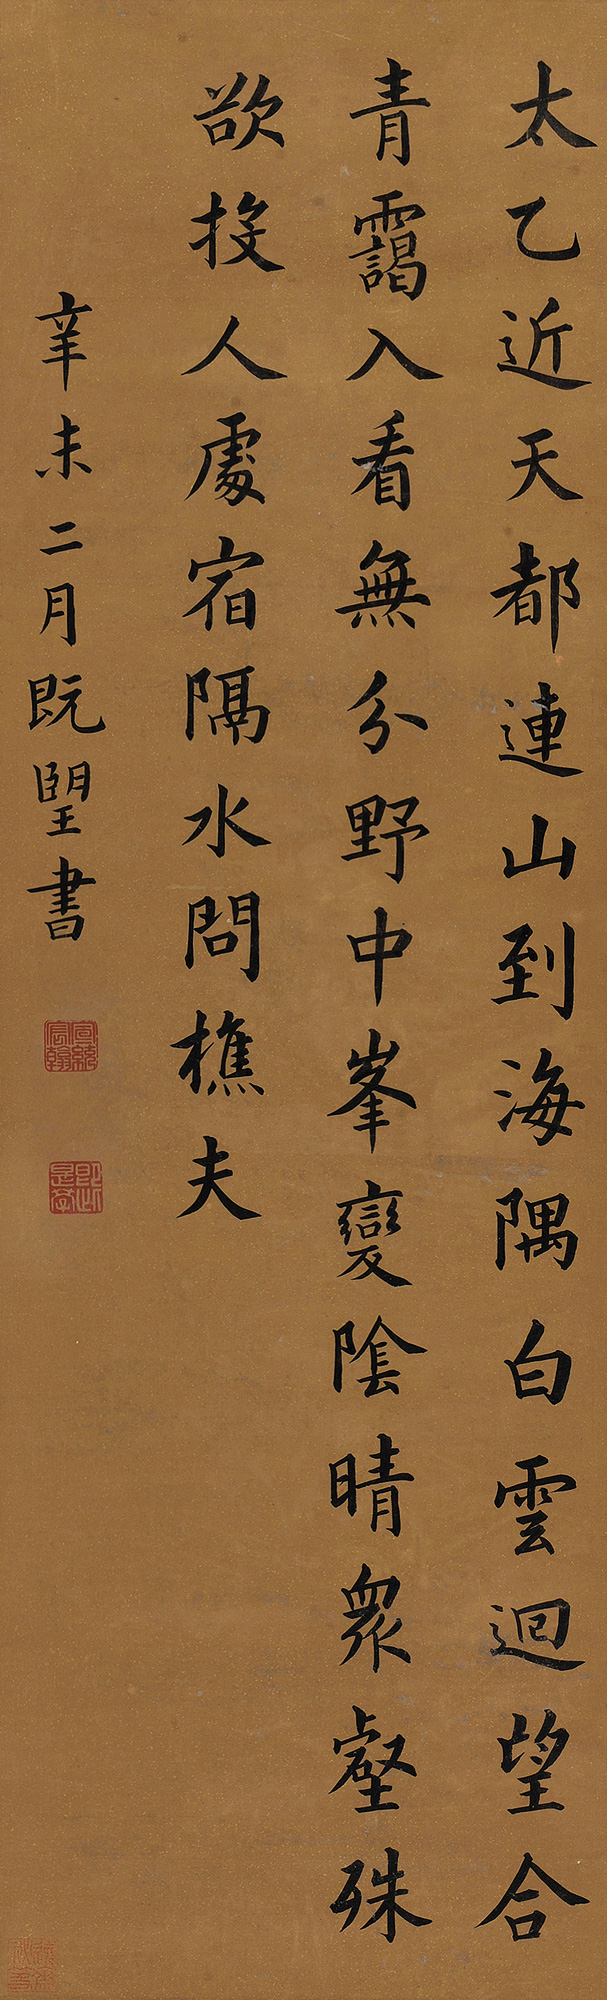 太乙近天都連山到海隅白雲迴望合
青靄入看無分野中峯變陰晴衆壑殊
欲投人處宿隔水問樵夫
辛未二月既望書
宣統宸翰